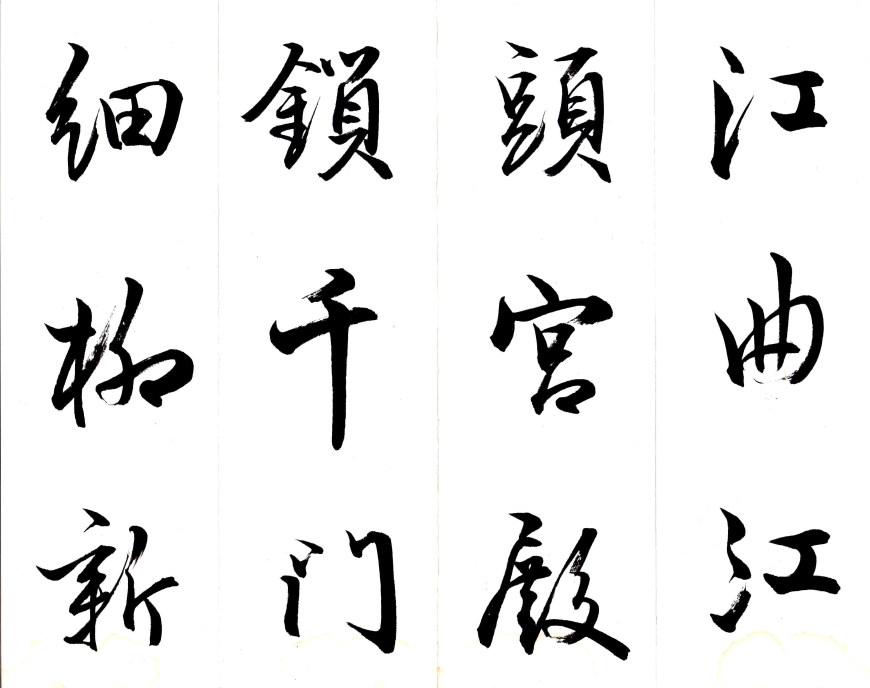 江曲江
頭宮殿
鎖千门
細柳新